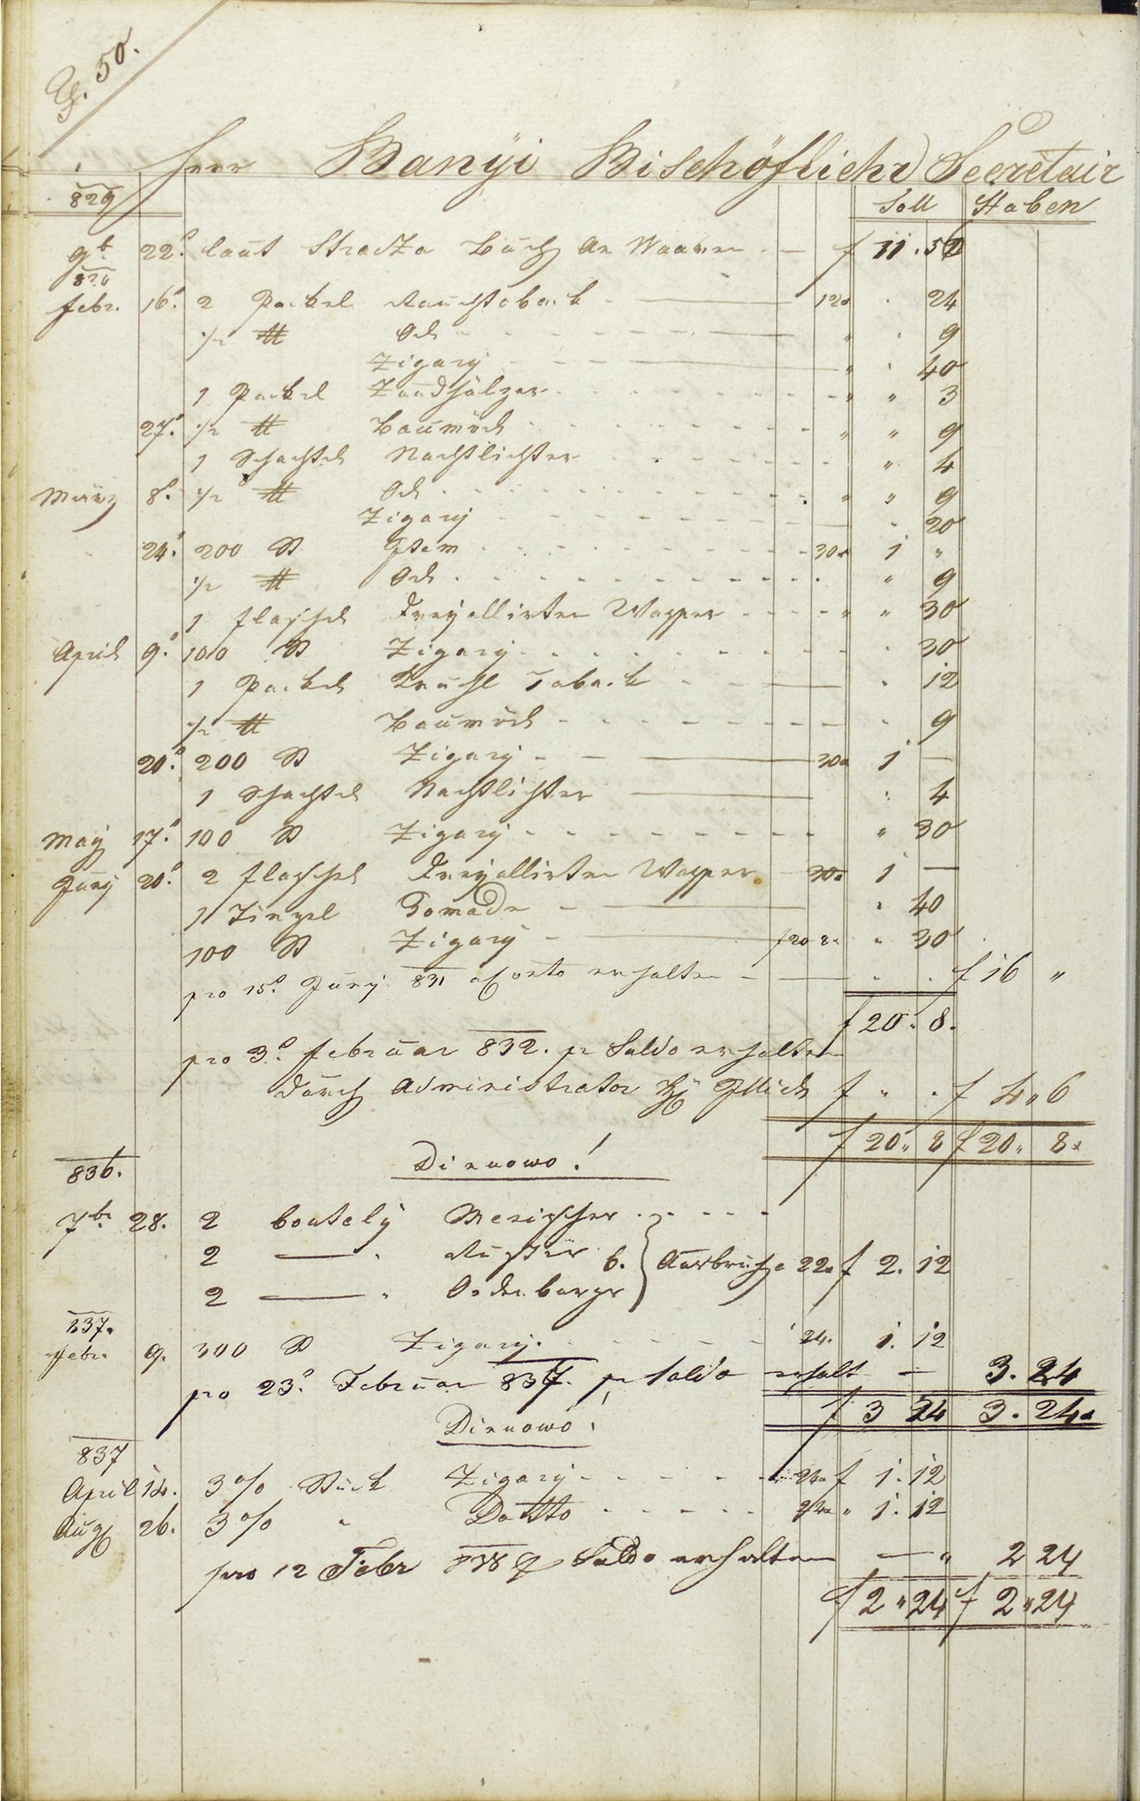 50.
Herr Banÿi Bischöflicher Secretair
829 Soll Haben
9b 22. laut Strazza Buch An Waaren — f 11.52
830
Febr. 16. 2 Packel Rauchtaback — 12 . 24
1/2 ℔ Oel " . 9
Zigarÿ — " . 40
1 Packel Zündhölzer " " 3
27. 1/2 ℔ Baumöel " " 9
1 Schachtel Nachtlichter " 4
März 8. 1/2 ℔ Oel " " 9
Zigarÿ — . 20
24. 200 St 30 1 "
1/2 ℔ Oel " 9
1 Flaschel Wasser " " 30
April 9. 100 St Zigarÿ . 30
1 Packel Taback — . 12
1/2 ℔ Baumöel — . 9
20. 200 St Zigarÿ — 30 1 —
1 Schachtel Nachtlichter — . 4
Maÿ 17. 100 St Zigarÿ " 30
Junÿ 20. 2 Flaschel Wasser — 30 1 —
1 Tiegel Pomade — . 40
100 St Zigarÿ — f 20 8 " 30
pro 15. Junÿ 831 a Conto erhalten — . . f 16 "
f 20. 8.
pro 3. Februar 832. pr Saldo erhalten
durch Administrator f " . f 4 " 6
f 20 " 8 f 20 " 8
836. Dienowo!
7br 28. 2 boutely
2 — . 6. Ausbruch a 22 f 2. 12
2 — .
837.
Febr. 9. 300 St Zigarÿ. 24. 1. 12
pro 23. Februar 837. pr Saldo erhalt — 3. 24
f 3 24 3. 24
Dienowo!
837
April 14. 3% Stück Zigarÿ 24 f 1. 12
Aug 26. 3% " Detto 24 " 1. 12
pro 12 Febr 838 Saldo erhalten — " 2 24
f 2 " 24 f 2 " 24